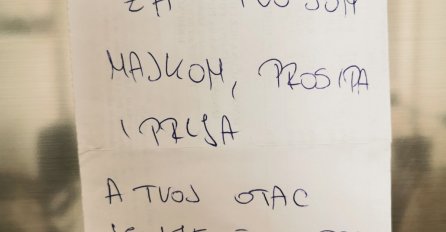 ZA TVOJOM
MAJKOM, PROSIPA
I PRLJA
A TVOJ OTAC